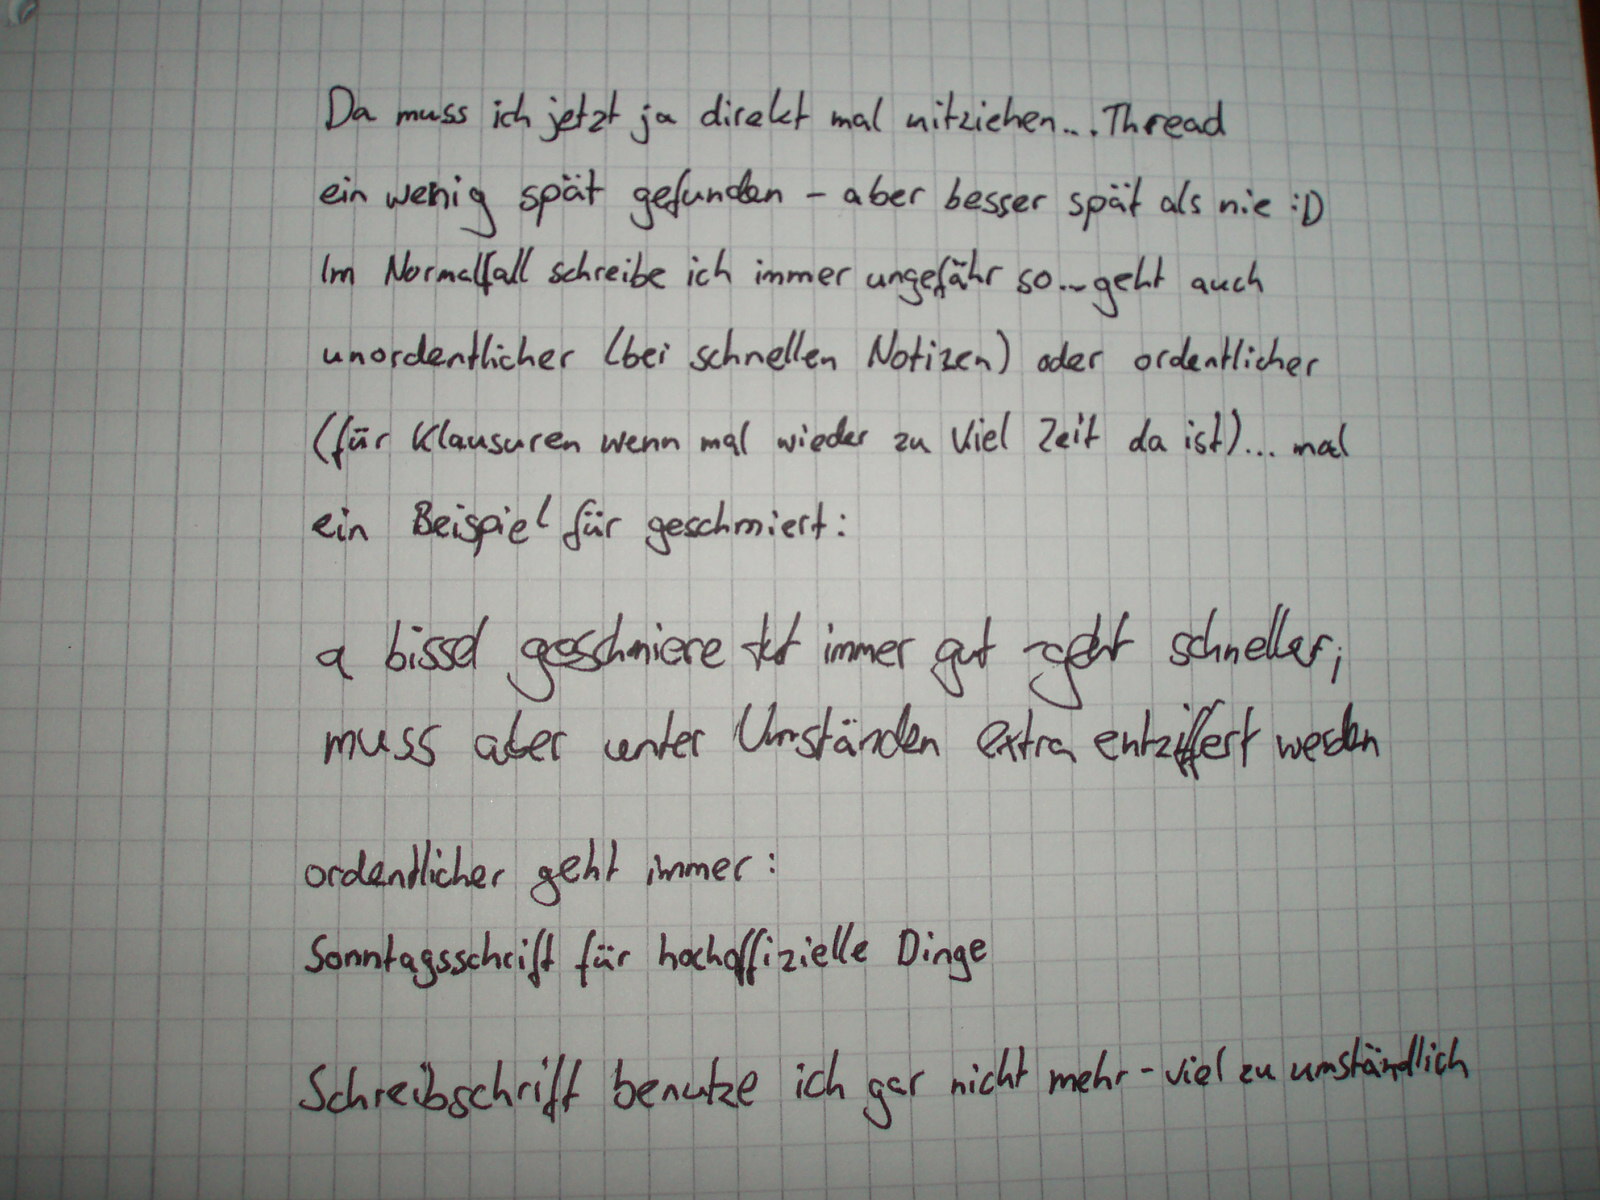 Da muss ich jetzt ja direkt mal mitziehen... Thread
ein wenig spät gefunden - aber besser spät als nie :D
Im Normalfall schreibe ich immer ungefähr so... geht auch
unordentlicher (bei schnellen Notizen) oder ordentlicher
(für Klausuren wenn mal wieder zu viel Zeit da ist)... mal
ein Beispiel für geschmiert:
a bissel geschmiere tut immer gut - geht schneller,
muss aber unter Umständen extra entziffert werden
ordentlicher geht immer:
Sonntagsschrift für hochoffizielle Dinge
Schreibschrift benutze ich gar nicht mehr - viel zu umständlich